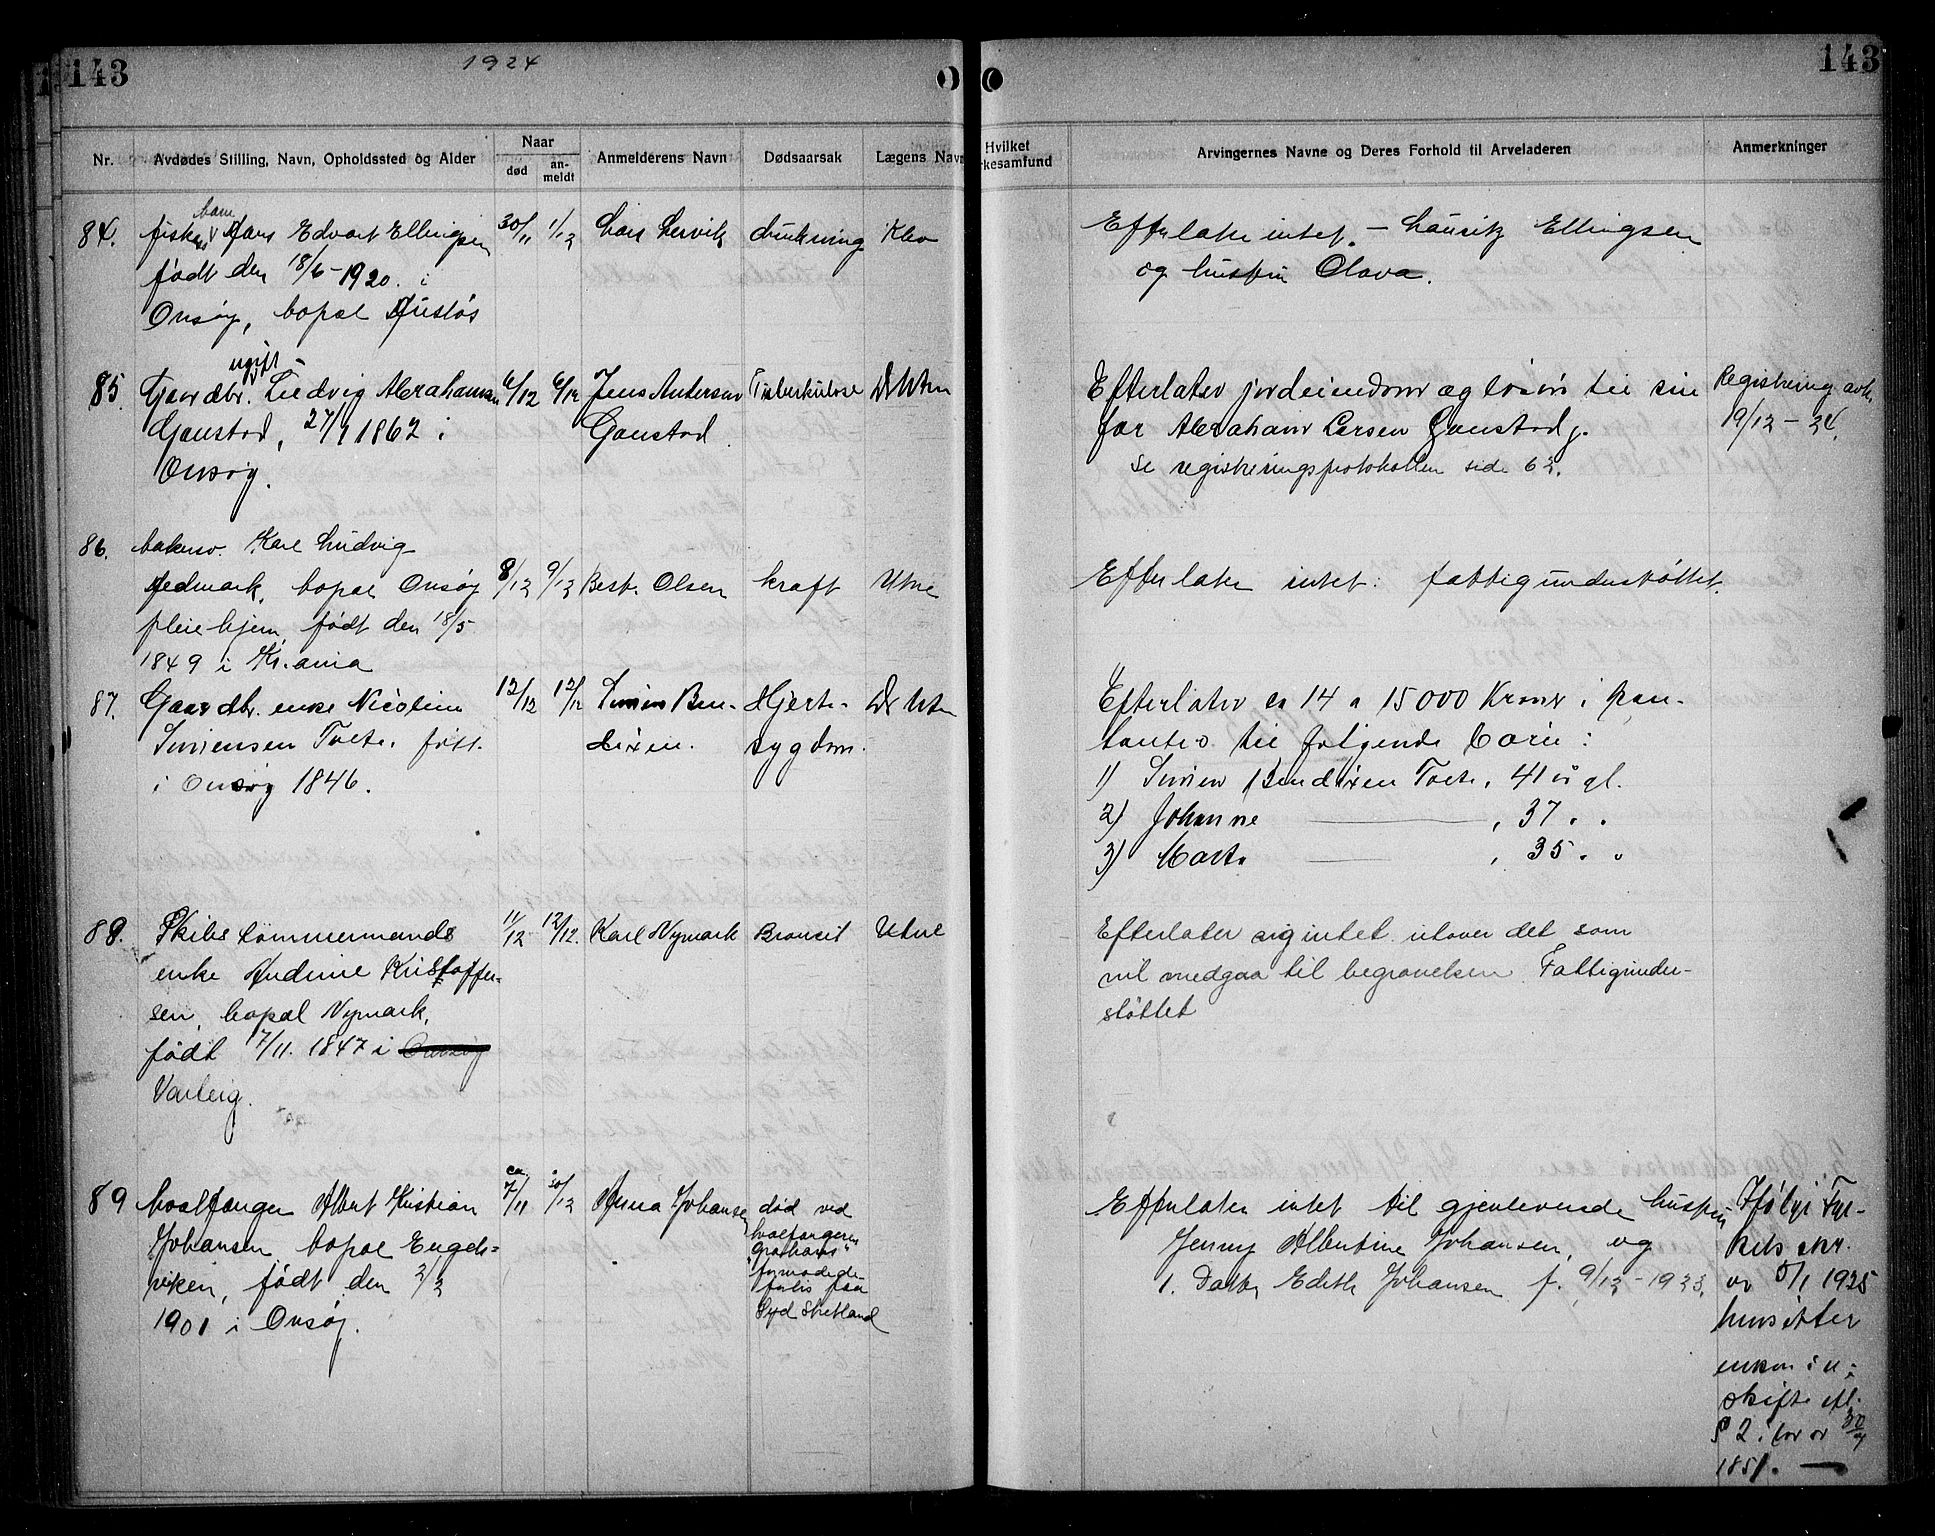 143
1924
143
Nr.
Avdødes Stilling, Navn, Opholdssted og Alder
Naar
død
an-
meldt
Anmelderens Navn
Dødsaarsak
Lægens Navn
Hvilket
rkesamfund
Arvingernes Navne og Deres Forhold til Arveladeren
Anmerkninger
84.
barn
Hans Edvart Ellingsen
30/11 1/12
Lars Lervik
drukning
født den 18/6-1920. i
Onsøy, bopæl
Efterlater intet. – Lauritz Ellingsen
og hustru Olava.
85.
ugift
Gaardbr. Ludvig Abrahamsen
6/12 6/12
Jens Andersen
Tuberkulose
Dr Utne
Gaustad, 27/1 1862 i
Gaustad
Onsøy.
Efterlater jordeiendom og løsøre til sin
far Abraham Larsen Gaustad.
Se registreringsprotokollen side 62.
Registrering avh.
19/12 – 24.
86.
Karl Ludvig
Hedmark, bopæl Onsøy
8/12 9/12
Bert. Olsen
kræft
Utne
pleiehjem, født den 18/5
1849 i Kr.ania
Efterlater intet: fattigunderstøttet.
87.
Gaardbr. enke Nicoline
12/12 12/12
Simen Ben-
Hjerte-
Dr Utne
Simensen Tofte, født
dixen.
sygdom.
i Onsøy 1846.
Efterlater ca 14 a 15000 Kroner i pan-
til følgende barn:
1) Simen Bendixen Tofte, 41 år gl.
2) Johanne — , 37 " "
3) Marta — , 35 " "
88.
Skibstømmermands
11/12 12/12.
Karl Nymark
Bronsit
Utne
enke Andrine Kristoffer-
sen, bopæl Nymark,
født 17/11. 1847 i Onsøy
Varteig.
Efterlater sig intet utover det som
vil medgaa til begravelsen. Fattigunder-
støttet
89
hvalfanger Albert Kristian
ca
7/11
30/12
Anna Johansen
død ved
Johansen, bopæl Engels-
hvalfangeren
viken, født den 2/2
formodede
forlis paa
1901 i Onsøy.
Syd Shetland
Efterlater intet til gjenlevende hustru
Jenny Albertine Johansen, og
1. Datter Edith Johansen f. 9/12-1923.
Ifølge Fyl-
kets skr.
av 5/1 1925
hensitter
enken i u-
skifte efl.
§ 2 i lov av 30/7
1851. —